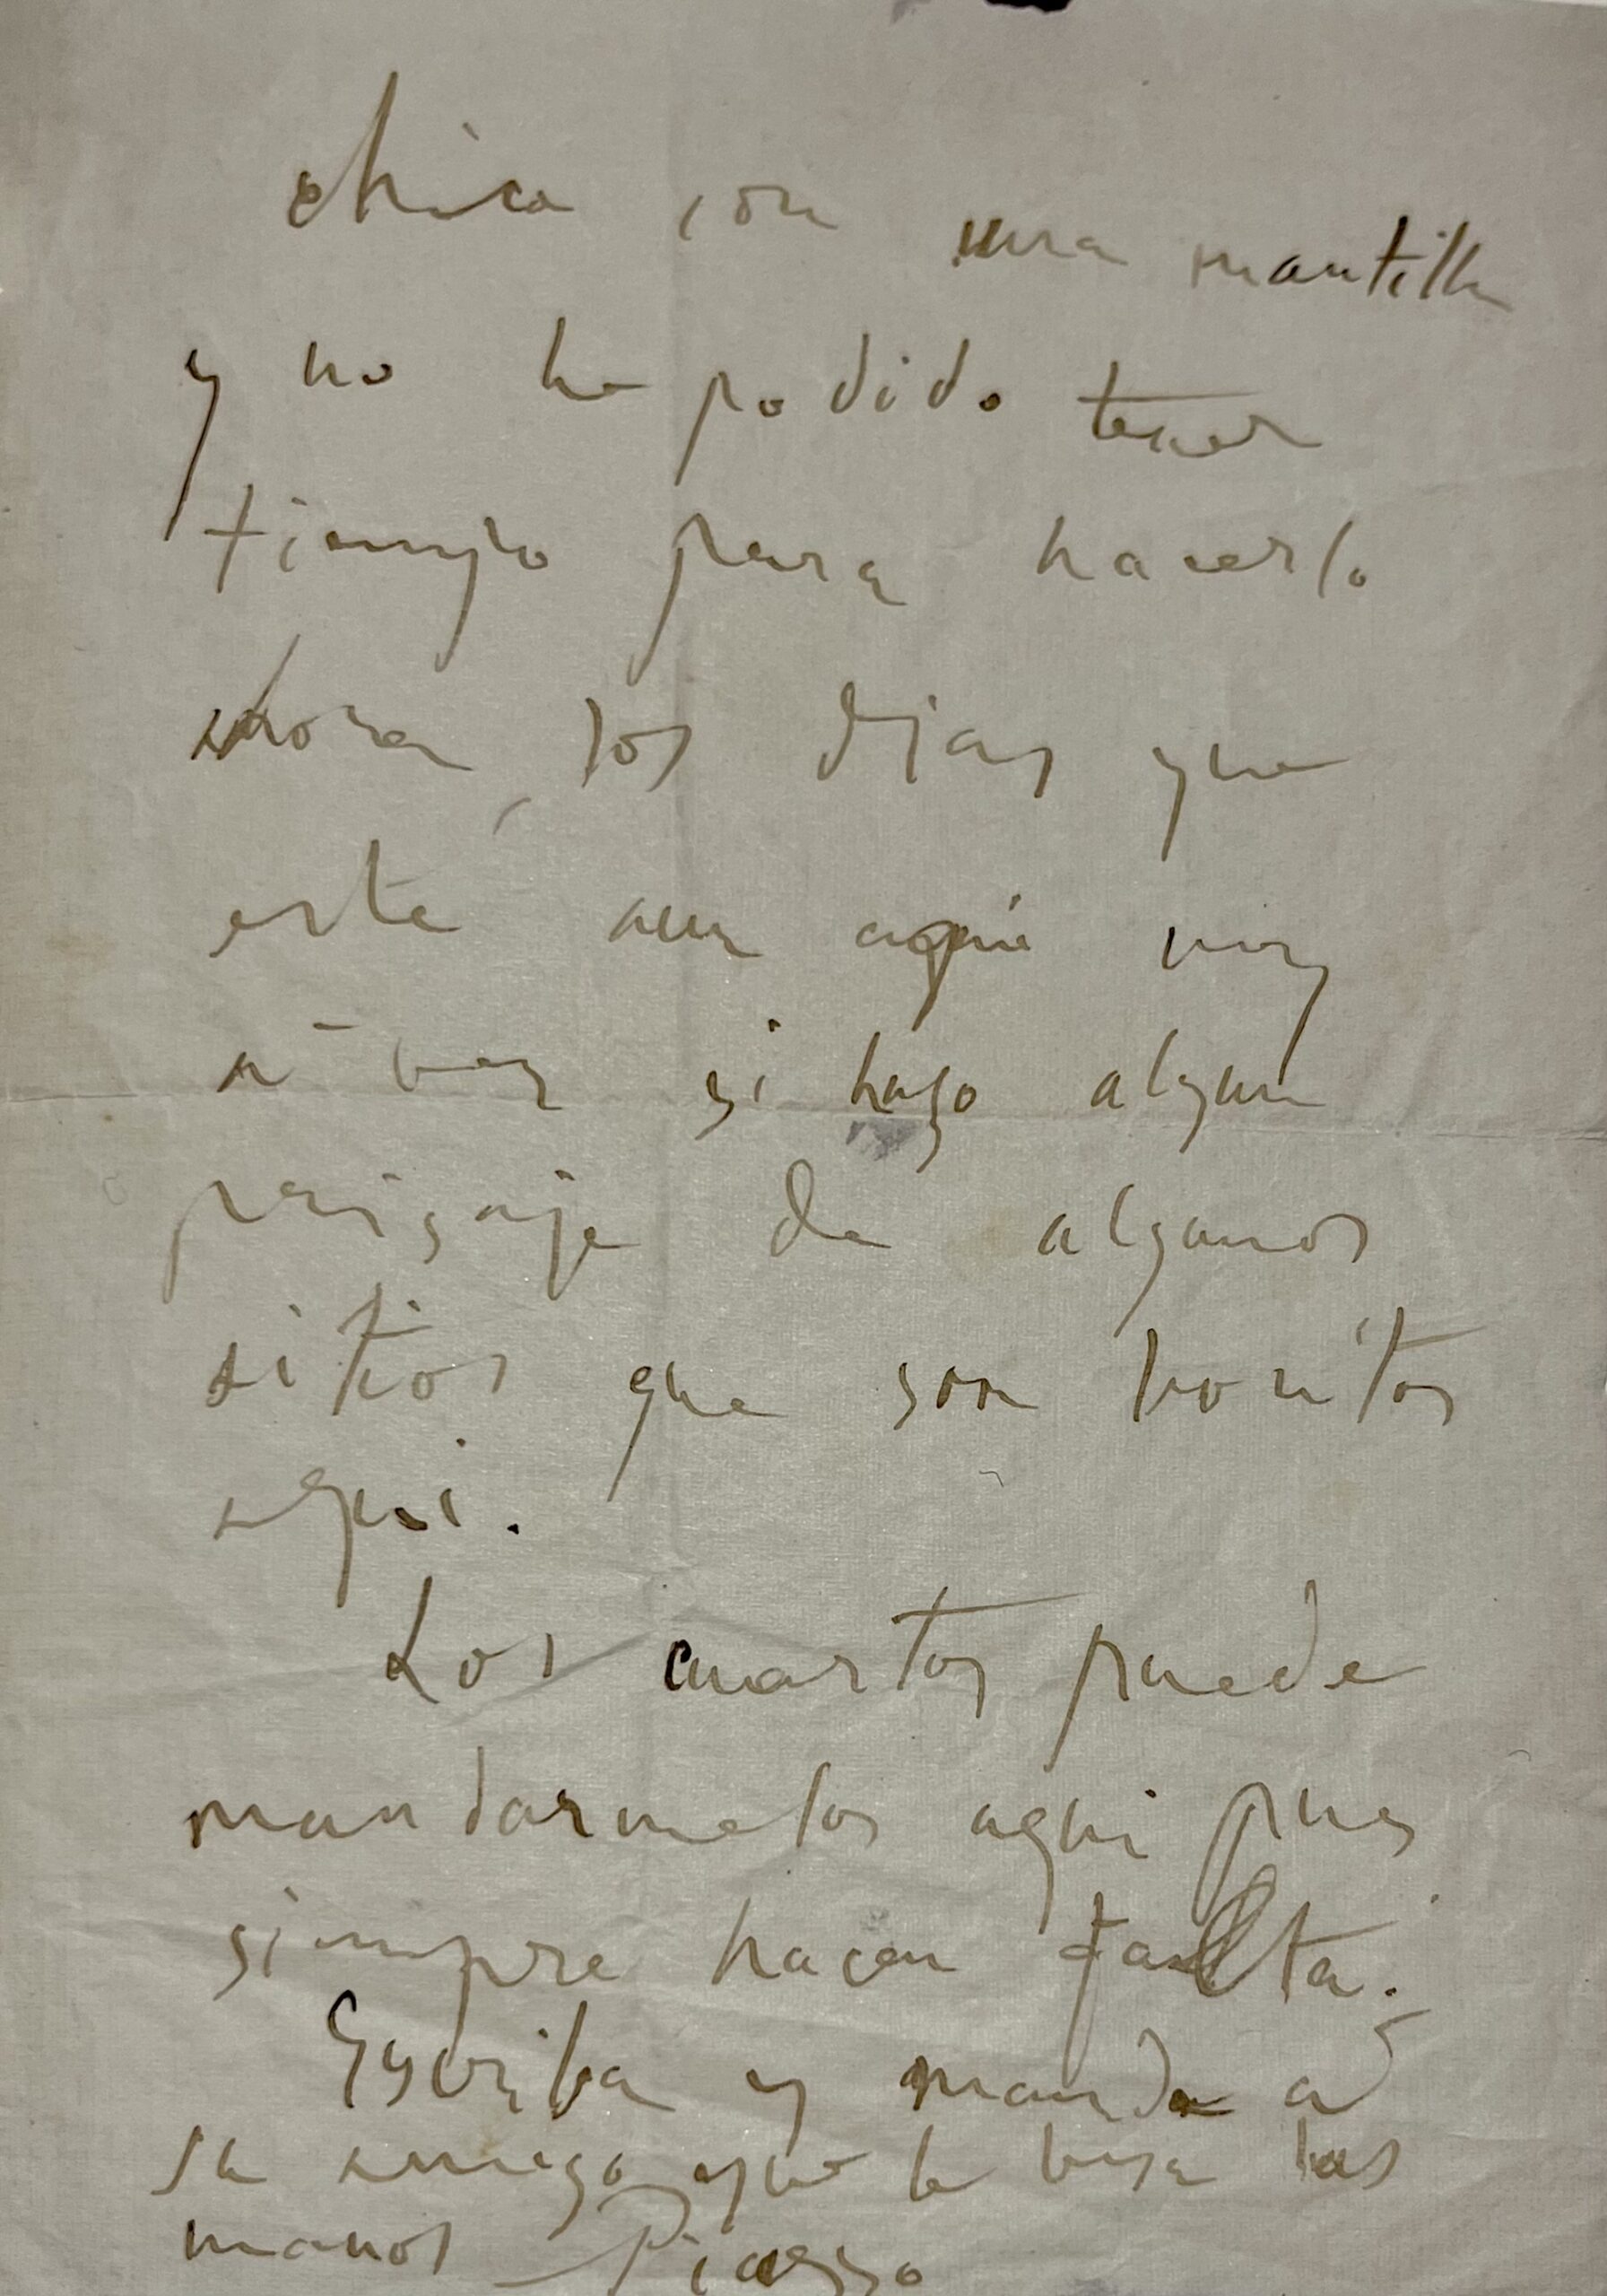 chica con una mantilla
y no he podido tener
tiempo para hacerlo
ahora, los dias que
este aun aqui voy
a ver si hago algun
paisaje de algunos
sitios que son bonitos
aqui.
Los cuartos puede
mandarmelos aqui pues
siempre hacen falta.
Escriba y mande a
su amigo que le besa las
manos Picasso